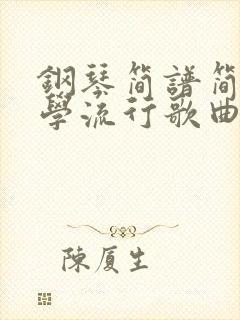 鋼琴简譜简
學流行歌曲
陳厦生